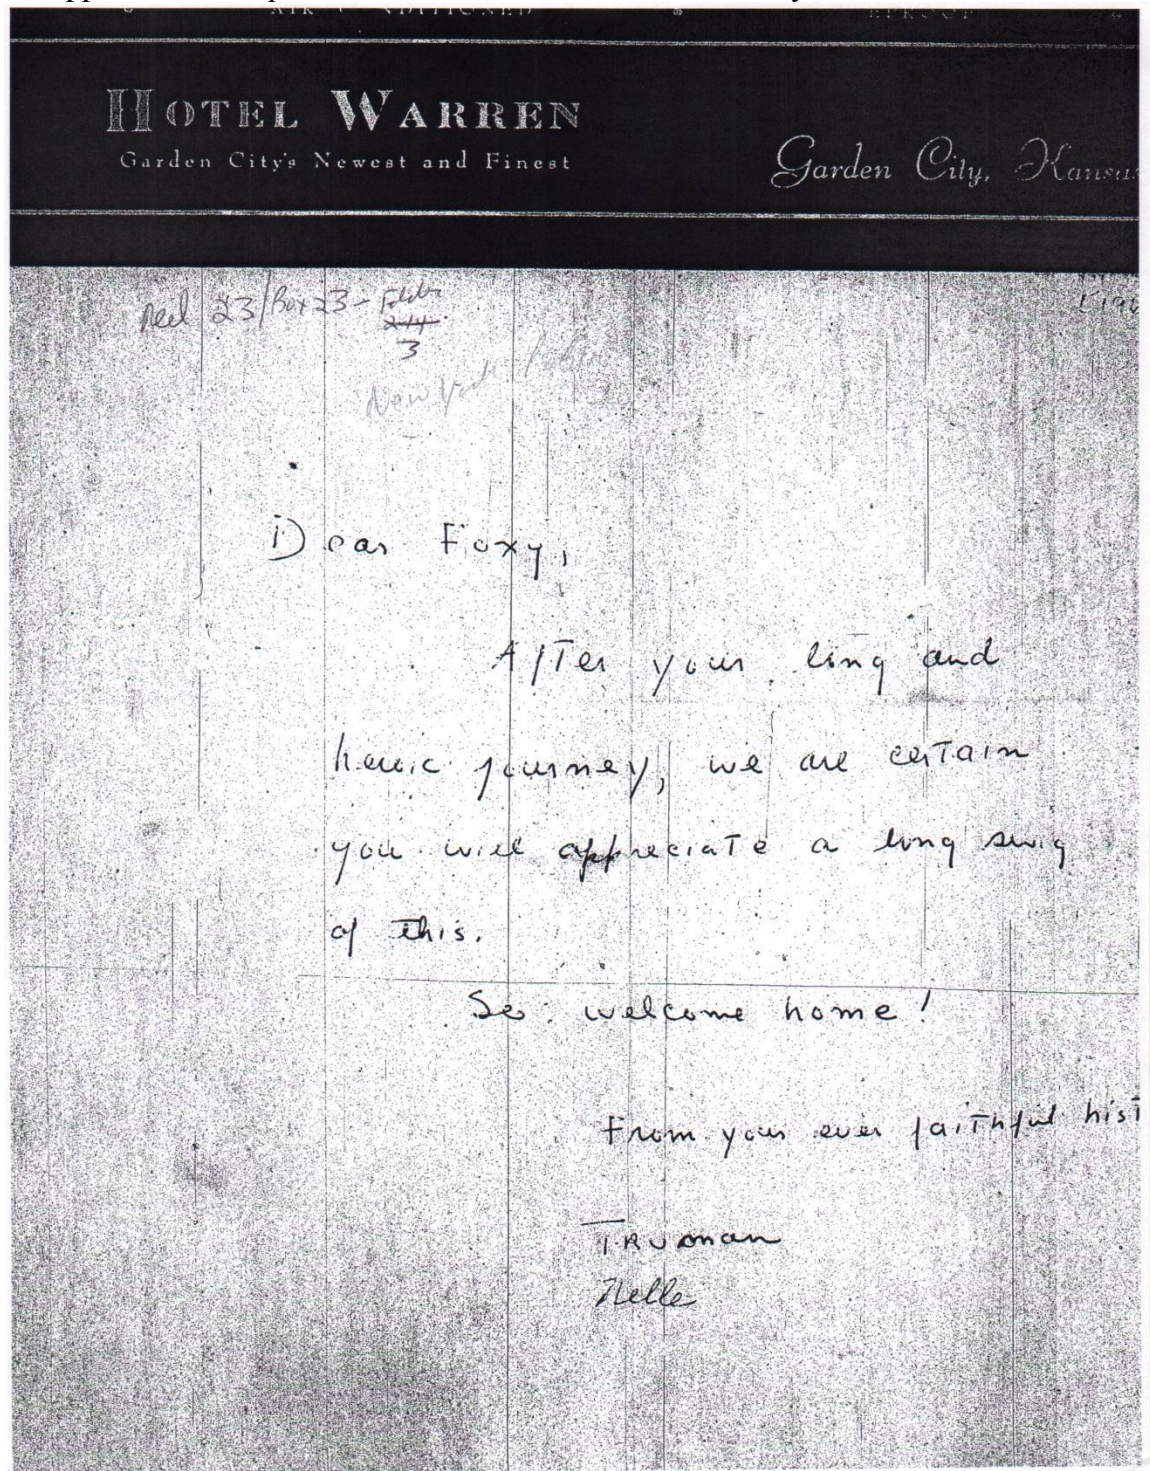 HOTEL WARREN
Garden City's Newest and Finest
Garden City, Kansas
Reel 23/Box 23 - Folder
244
3
New York
Dear Foxy,
After your long and
heroic journey, we are certain
you will appreciate a long swig
of this.
So: welcome home!
From your ever faithful hist
Truman
Nelle